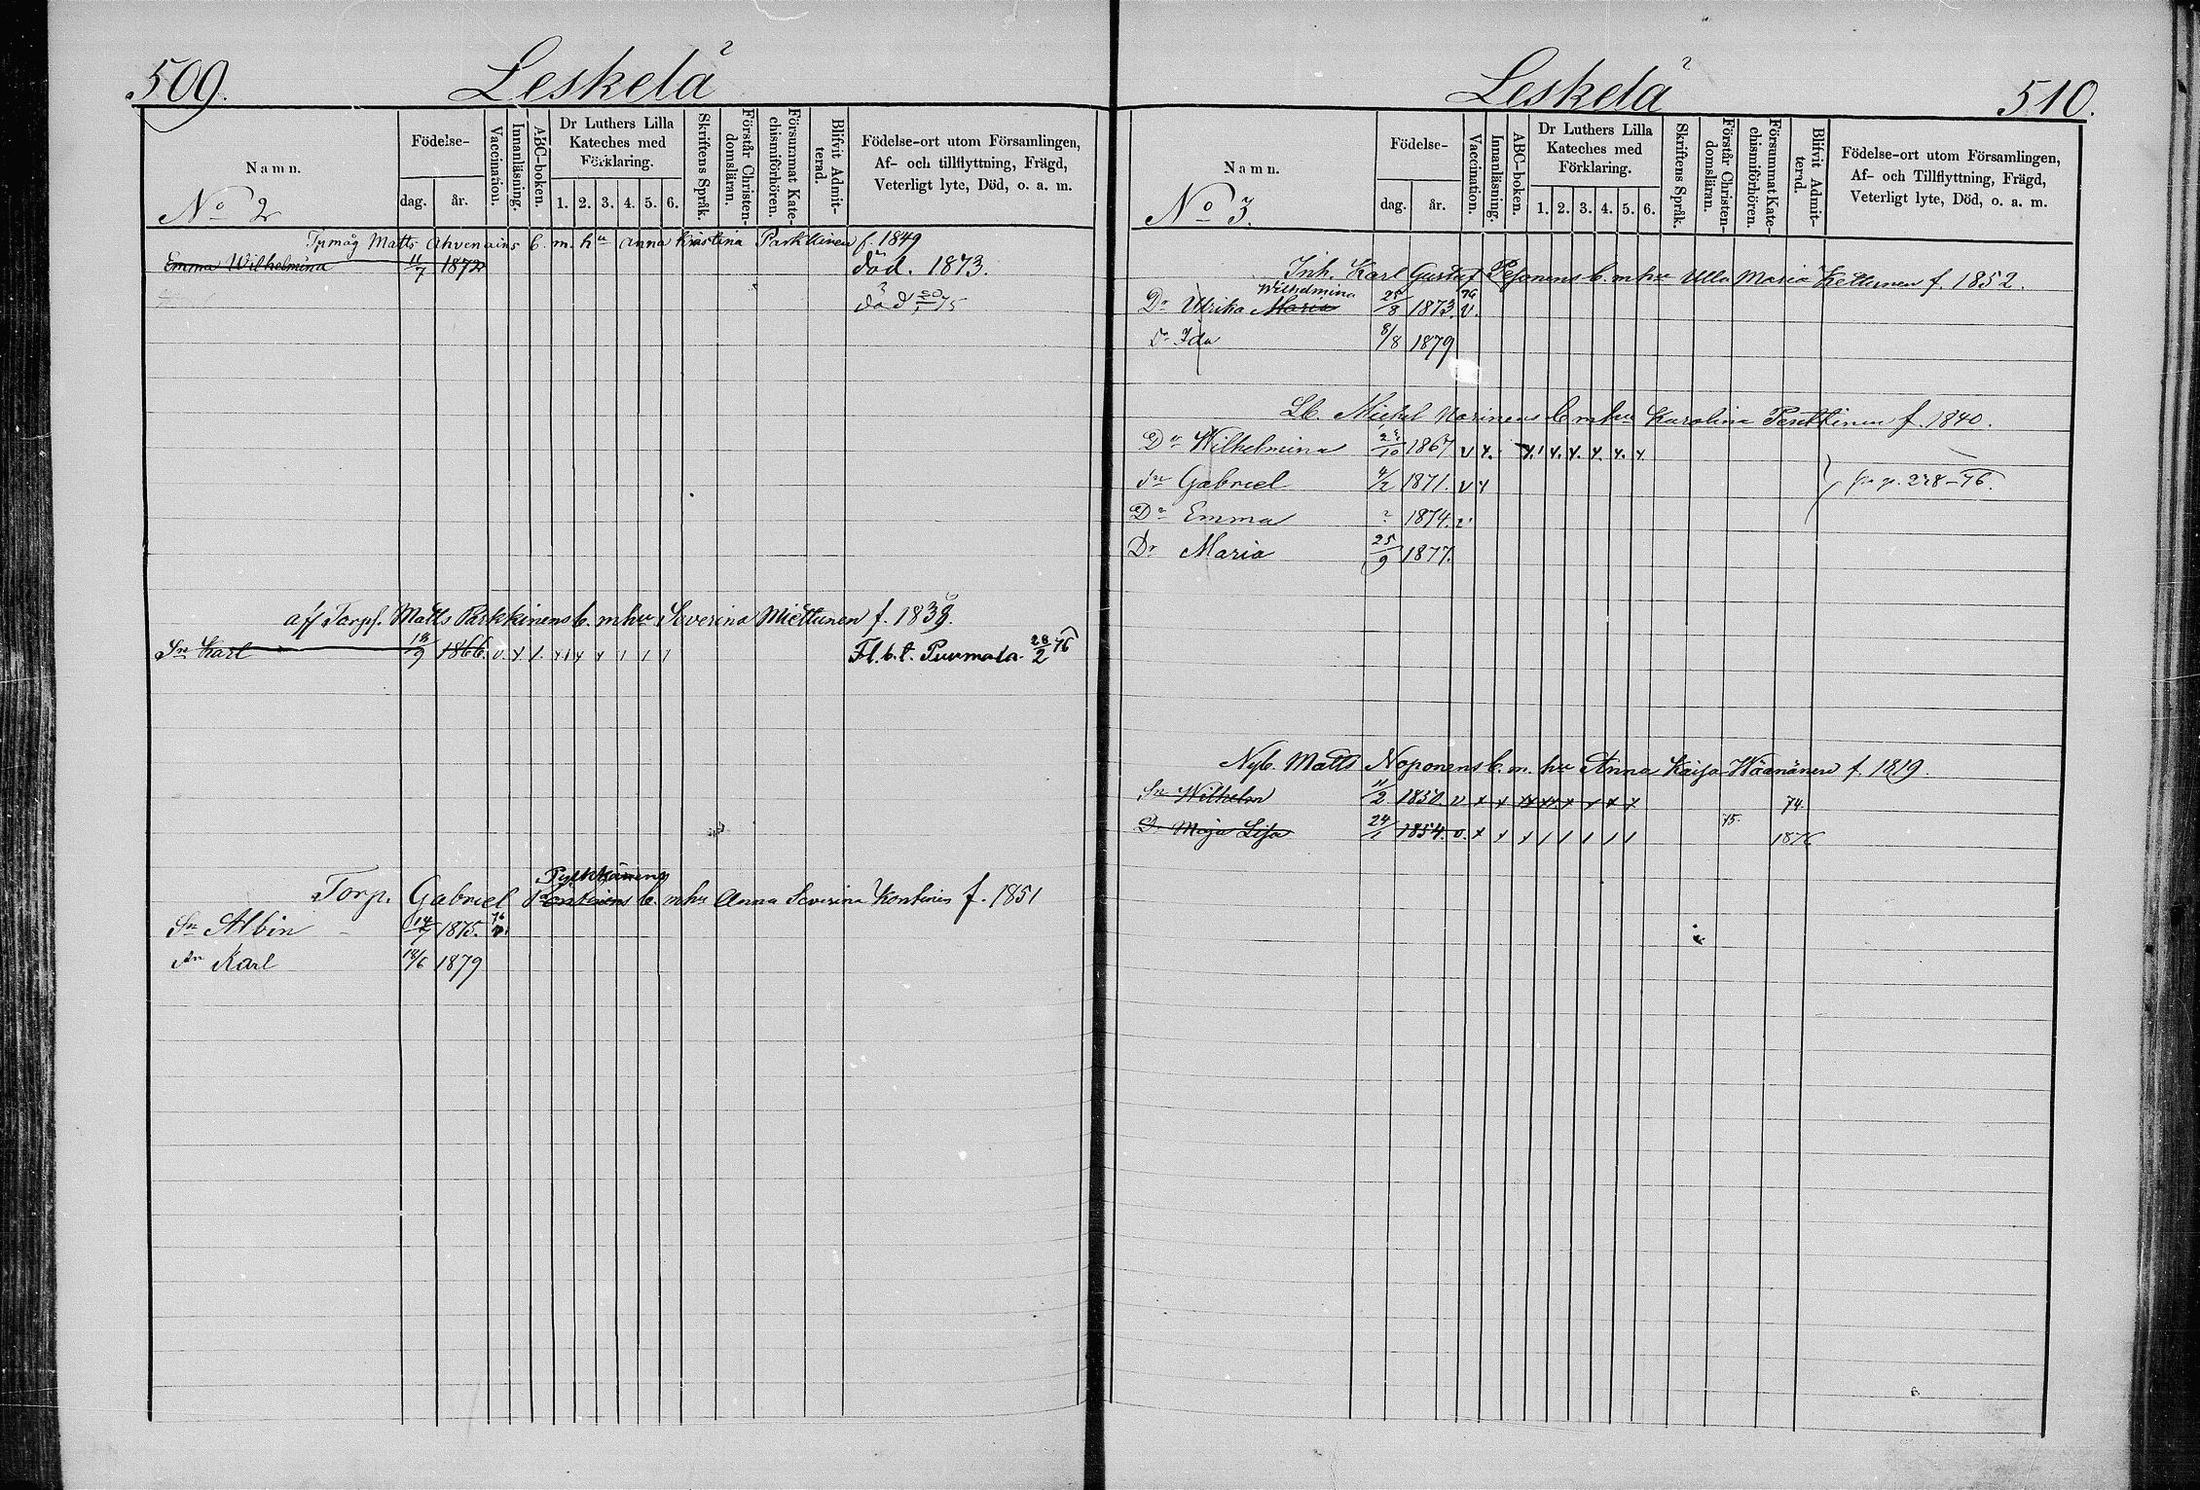 509.
Leskelä
Namn.
Födelse-
dag.
år.
Vaccination.
Innanläsning.
ABC-boken.
Dr Luthers Lilla Kateches med Förklaring.
1. 2. 3. 4. 5. 6.
Skriftens Språk.
Förstår Christendomsläran.
Försummat Katechismiförhören.
Blifvit Admitterad.
Födelse-ort utom Församlingen,
Af- och tillflyttning, Frägd,
Veterligt lyte, Död, o. a. m.
No 2
Matts Ahvenains b. m. hu Anna Kristina Parkkinen f. 1849
Emma Wilhelmina 11/7 1872 död. 1873.
död 75
Torpf. Matts Parkkinens b. m hu Severina Miettunen f. 1839.
Sn Karl 18/9 1866. v. Fl. b. t. Puumala 28/2 76
Pylkkänens
Torp. Gabriel b. m hu Anna Severina Kontinen f. 1851
Sn Albin 14/7 1875. 76 v.
Sn Karl 18/6 1879
Leskelä
510.
Namn.
Födelse-
dag.
år.
Vaccination.
Innanläsning.
ABC-boken.
Dr Luthers Lilla Kateches med Förklaring.
1. 2. 3. 4. 5. 6.
Skriftens Språk.
Förstår Christendomsläran.
Försummat Katechismiförhören.
Blifvit Admitterad.
Födelse-ort utom Församlingen,
Af- och Tillflyttning, Frägd,
Veterligt lyte, Död, o. a. m.
No 3.
Inh. Karl Gustaf Pesonens b. m hu Ulla Maria Kettunen f. 1852.
Wilhelmina
Dr Ulrika Maria 25/8 1873. 76 v.
Dr Ida 8/8 1879
Mickel Narinens b m hu Karolina Pesttinen f. 1840.
Dr Wilhelmina 1867 v
Sn Gabriel 4/2 1871. v p. 278-76.
Dr Emma 1874. v
Dr Maria 25/9 1877.
Nyb. Matts Noponens b. m. hu Anna Kaisa Wäänänen f. 1819.
Sn Wilhelm 11/2 1850. v 74.
Dr Maja Lisa 24/1 1854. v. 75. 1876